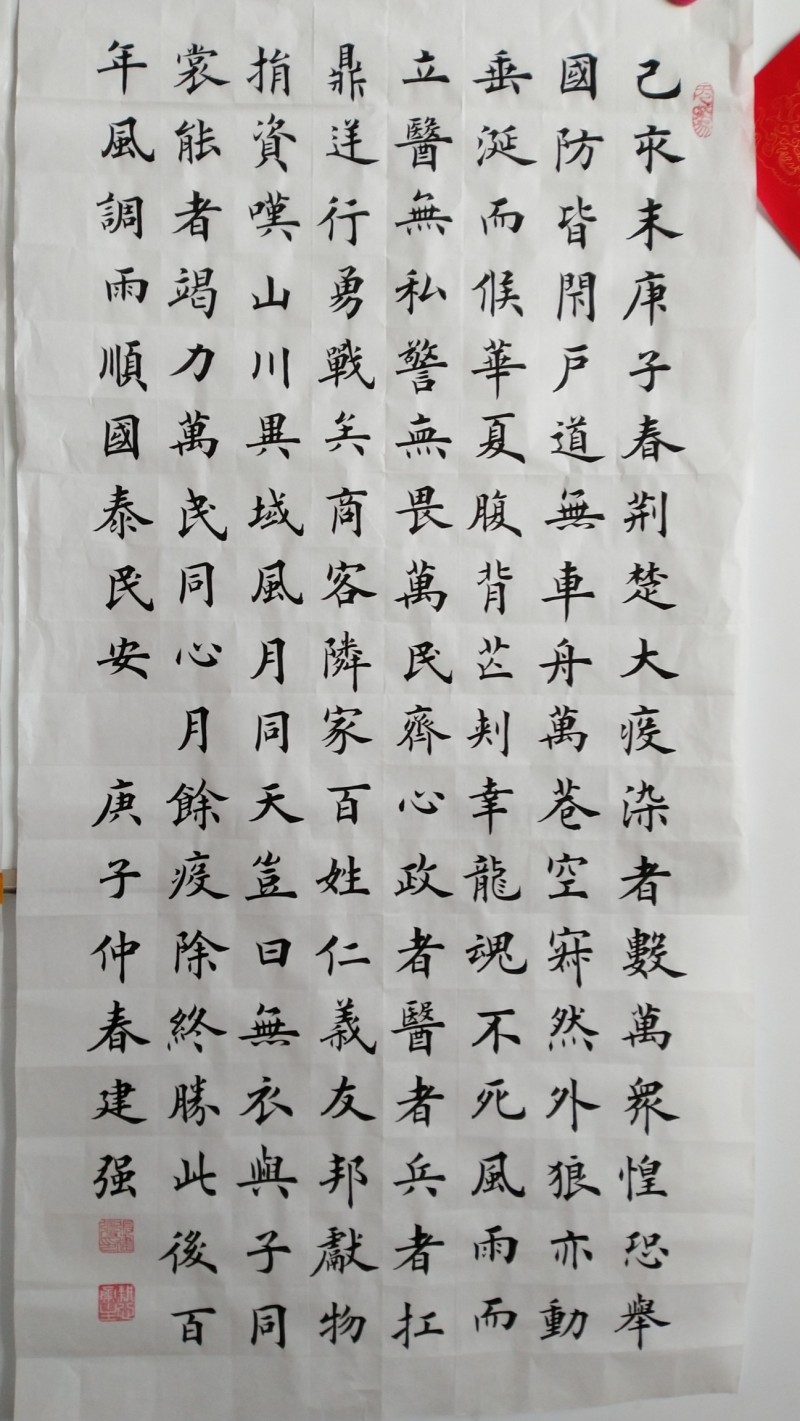 己亥末庚子春荆楚大疫染者數萬衆惶恐舉
國防皆閉戶道無車舟萬巷空寂然外狼亦動
垂涎而候華夏腹背芒刺幸龍魂不死風雨而
立醫無私警無畏萬民齊心政者醫者兵者扛
鼎逆行勇戰矣商客隣家百姓仁義友邦獻物
捐資嘆山川異域風月同天豈曰無衣與子同
裳能者竭力萬民同心月餘疫除終勝此後百
年風調雨順國泰民安 庚子仲春建强